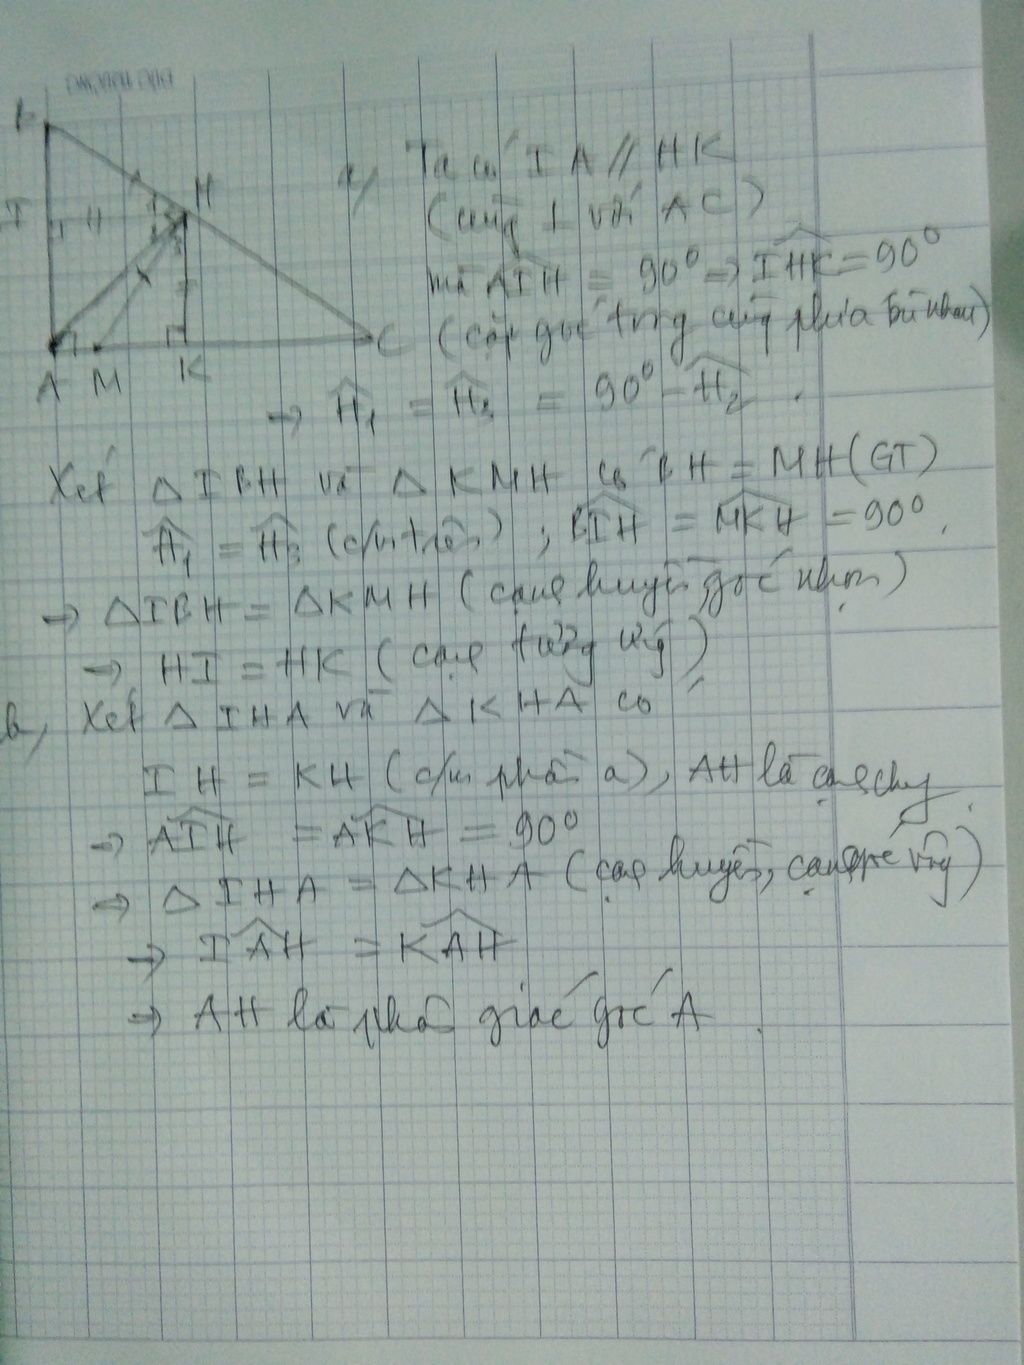 B
H
I
A M K C
a, Ta có IA // HK
(cùng ⊥ với AC)
mà AIH = 90° → IHK = 90°
(cặp góc trong cùng phía bù nhau)
→ H₁ = H₃ = 90° - H₂.
Xét △IBH và △KMH có BH = MH (GT)
H₁ = H₃ (c/m trên) ; BIH = MKH = 90°.
→ △IBH = △KMH (cạnh huyền, góc nhọn)
→ HI = HK (cạnh tương ứng)
b, Xét △IHA và △KHA có
IH = KH (c/m phần a), AH là cạnh chung.
→ AIH = AKH = 90°
→ △IHA = △KHA (cạnh huyền, cạnh góc vuông)
→ IAH = KAH
→ AH là phân giác góc A.